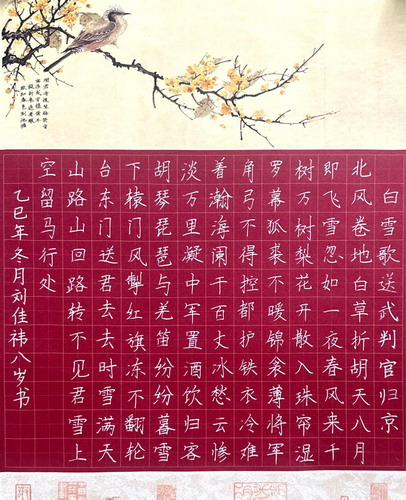 白雪歌送武判官归京
北风卷地白草折胡天八月
即飞雪忽如一夜春风来千
树万树梨花开散入珠帘湿
罗幕狐裘不暖锦衾薄将军
角弓不得控都护铁衣冷难
着瀚海阑干百丈冰愁云惨
淡万里凝中军置酒饮归客
胡琴琵琶与羌笛纷纷暮雪
下辕门风掣红旗冻不翻轮
台东门送君去去时雪满天
山路山回路转不见君雪上
空留马行处
乙巳年冬月刘佳祎八岁书